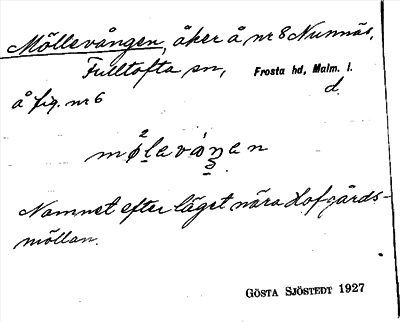 Möllevången, åker å nr 8 Nunnäs,
Fulltofta sn, Frosta hd, Malm. l.
å fig. nr 6 d.
Namnet efter läget nära Hofgårds-
möllan.
GÖSTA SJÖSTEDT 1927